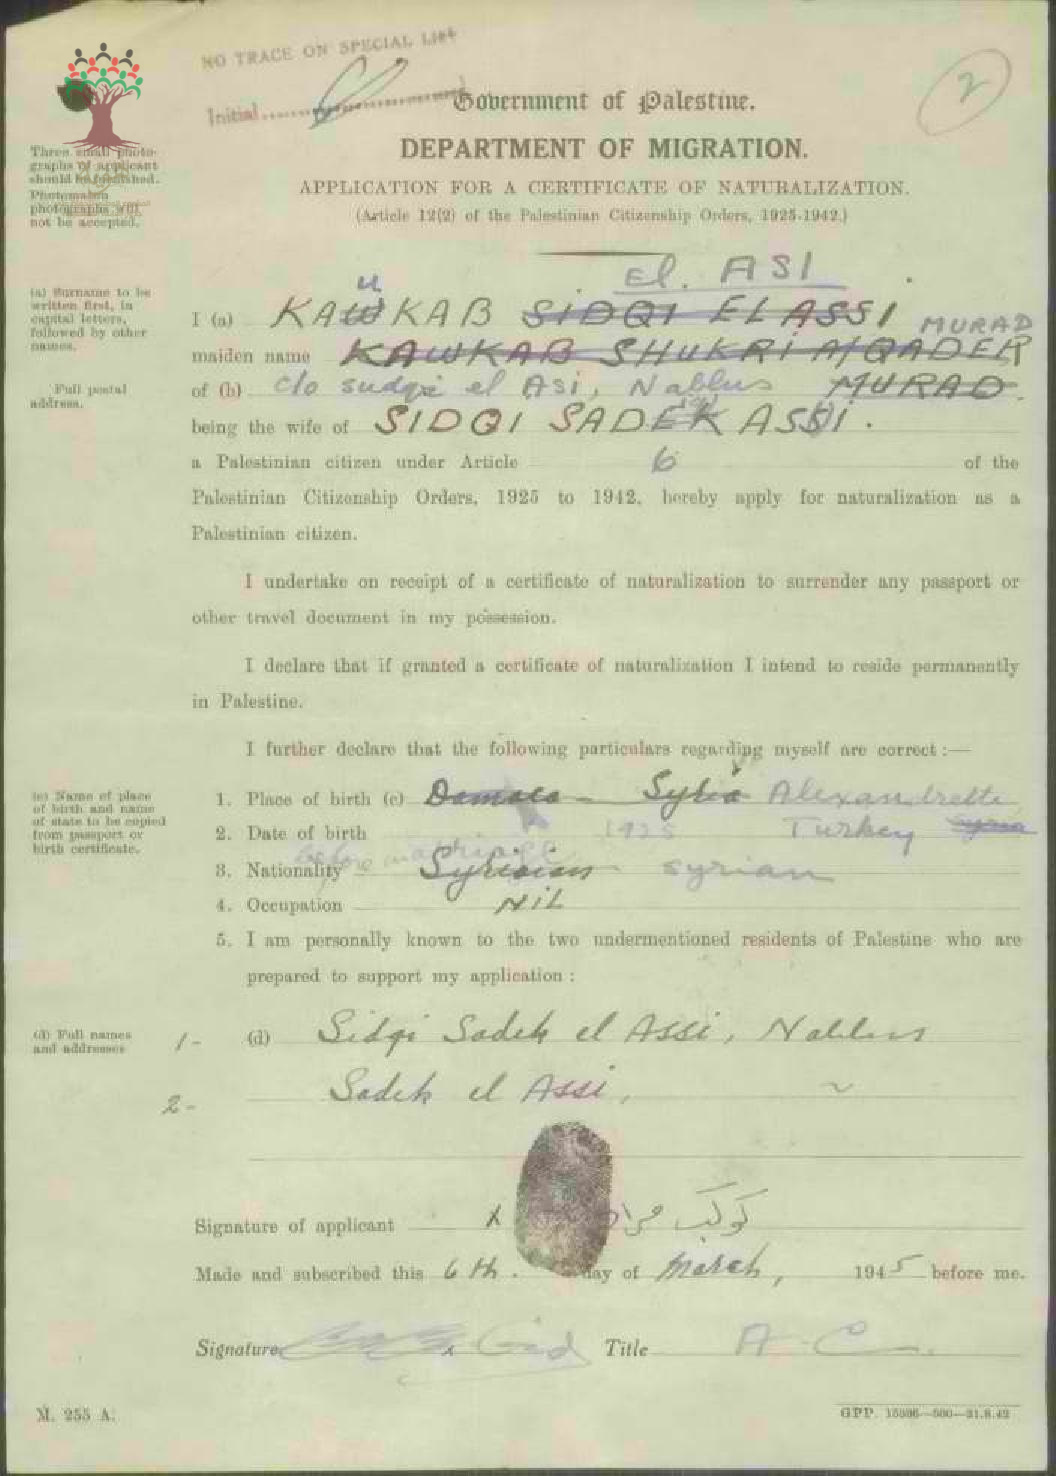 NO TRACE ON SPECIAL LIST
Initial
2
Government of Palestine.
DEPARTMENT OF MIGRATION.
APPLICATION FOR A CERTIFICATE OF NATURALIZATION.
(Article 12(2) of the Palestinian Citizenship Orders, 1925-1942.)
Three small photo-
graphs of applicant
should be furnished.
Photomaton
photographs will
not be accepted.
El. ASI
u
(a) Surname to be
written first, in
capital letters,
followed by other
names.
I (a) KAWKAB SIDQI EL ASSI MURAD
maiden name KAWKAB SHUKRI A/QADER
Full postal
address.
of (b) c/o sudqi el Asi, Nablus MURAD
being the wife of SIDQI SADEK ASSI.
a Palestinian citizen under Article 6 of the
Palestinian Citizenship Orders, 1925 to 1942, hereby apply for naturalization as a
Palestinian citizen.
I undertake on receipt of a certificate of naturalization to surrender any passport or
other travel document in my possession.
I declare that if granted a certificate of naturalization I intend to reside permanently
in Palestine.
I further declare that the following particulars regarding myself are correct :—
(c) Name of place
of birth and name
of state to be copied
from passport or
birth certificate.
1. Place of birth (c) Syria Alexandrette
2. Date of birth 1925 Turkey Syria
before marriage
3. Nationality Syrian syrian
4. Occupation NIL
5. I am personally known to the two undermentioned residents of Palestine who are
prepared to support my application :
(d) Full names
and addresses
1- (d) Sidqi Sadek el Assi, Nablus
2- Sadek el Assi, ~
Signature of applicant x كوكب مراد
Made and subscribed this 6th. day of March, 1945 before me.
Signature Title A.C.
M. 255 A.
GPP. 15596—500—31.8.42